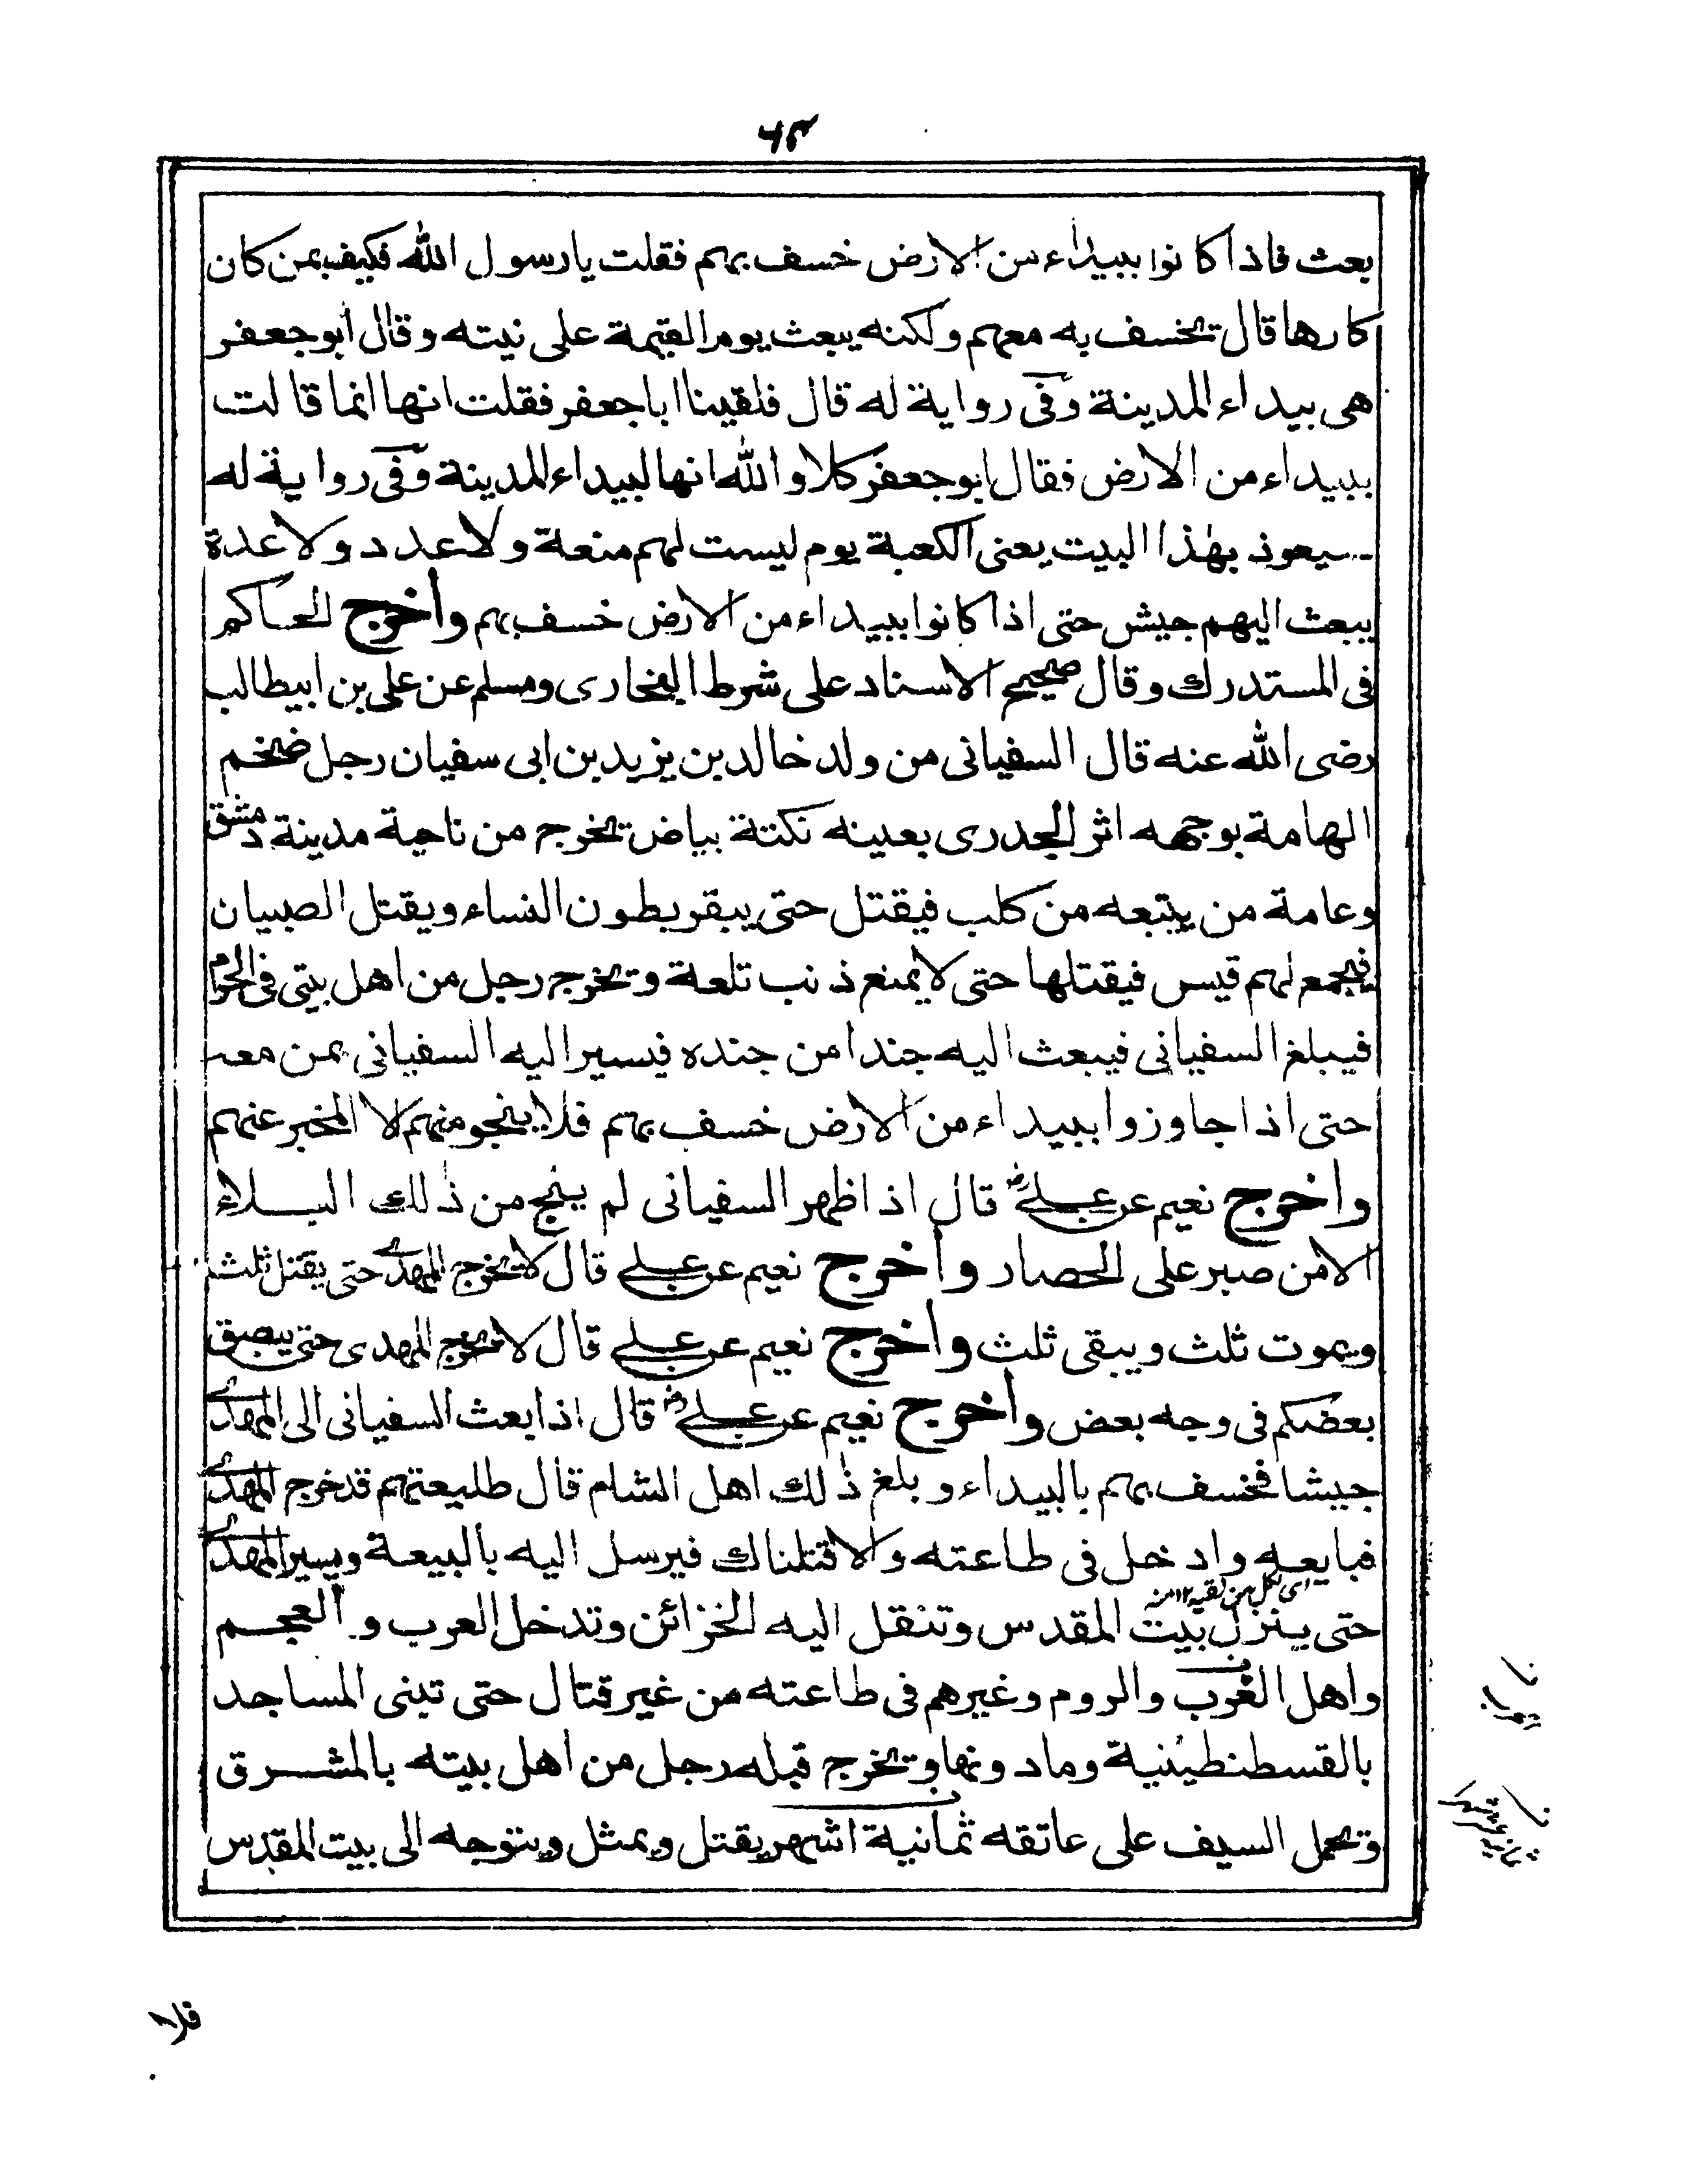 بعث فاذا كانوا ببيداء من الارض خسف بهم فقلت يا رسول الله فكيف بمن كان
كارها قال يخسف به معهم ولكنه يبعث يوم القيمة على نيته وقال ابو جعفر
هى بيداء المدينة وفى رواية له قال فلقينا ابا جعفر فقلت انها انما قالت
ببيداء من الارض فقال ابو جعفر كلا والله انها لبيداء المدينة وفى رواية له
سيعوذ بهذا البيت يعنى الكعبة يوم ليست لهم منعة ولا عدد ولا عدة
يبعث اليهم جيش حتى اذا كانوا ببيداء من الارض خسف بهم واخرج الحاكم
فى المستدرك وقال صحيح الاسناد على شرط البخارى ومسلم عن على بن ابيطالب
رضى الله عنه قال السفيانى من ولد خالد بن يزيد بن ابى سفيان رجل ضخم
الهامة بوجهه اثر الجدرى بعينه نكتة بياض يخرج من ناحية مدينة دمشق
وعامة من يتبعه من كلب فيقتل حتى يبقر بطون النساء ويقتل الصبيان
فيجمع لهم قيس فيقتلها حتى لا يمنع ذنب تلعة ويخرج رجل من اهل بيتى فى الحرام
فيبلغ السفيانى فيبعث اليه جندا من جنده فيسير اليه السفيانى بمن معه
حتى اذا جاوزوا ببيداء من الارض خسف بهم فلا ينجو منهم الا المخبر عنهم
واخرج نعيم عن على رض قال اذا ظهر السفيانى لم ينج من ذلك البلاء
الا من صبر على الحصار واخرج نعيم عن على قال لا يخرج المهدى حتى يقتل ثلث
ويموت ثلث ويبقى ثلث واخرج نعيم عن على قال لا يخرج المهدى حتى يبصق
بعضكم فى وجه بعض واخرج نعيم عن على رض قال اذا بعث السفيانى الى المهدى
جيشا فخسف بهم بالبيداء وبلغ ذلك اهل الشام قال طليعتهم قد خرج المهدى
فبايعه وادخل فى طاعته والا قتلناك فيرسل اليه بالبيعة ويسير المهدى
حتى ينزل بيت المقدس وتنقل اليه الخزائن وتدخل العرب والعجم
واهل الغرب والروم وغيرهم فى طاعته من غير قتال حتى تبنى المساجد
بالقسطنطينية وما دونها ويخرج قبله رجل من اهل بيته بالمشرق
ويحمل السيف على عاتقه ثمانية اشهر يقتل ويمثل ويتوجه الى بيت المقدس
فلا